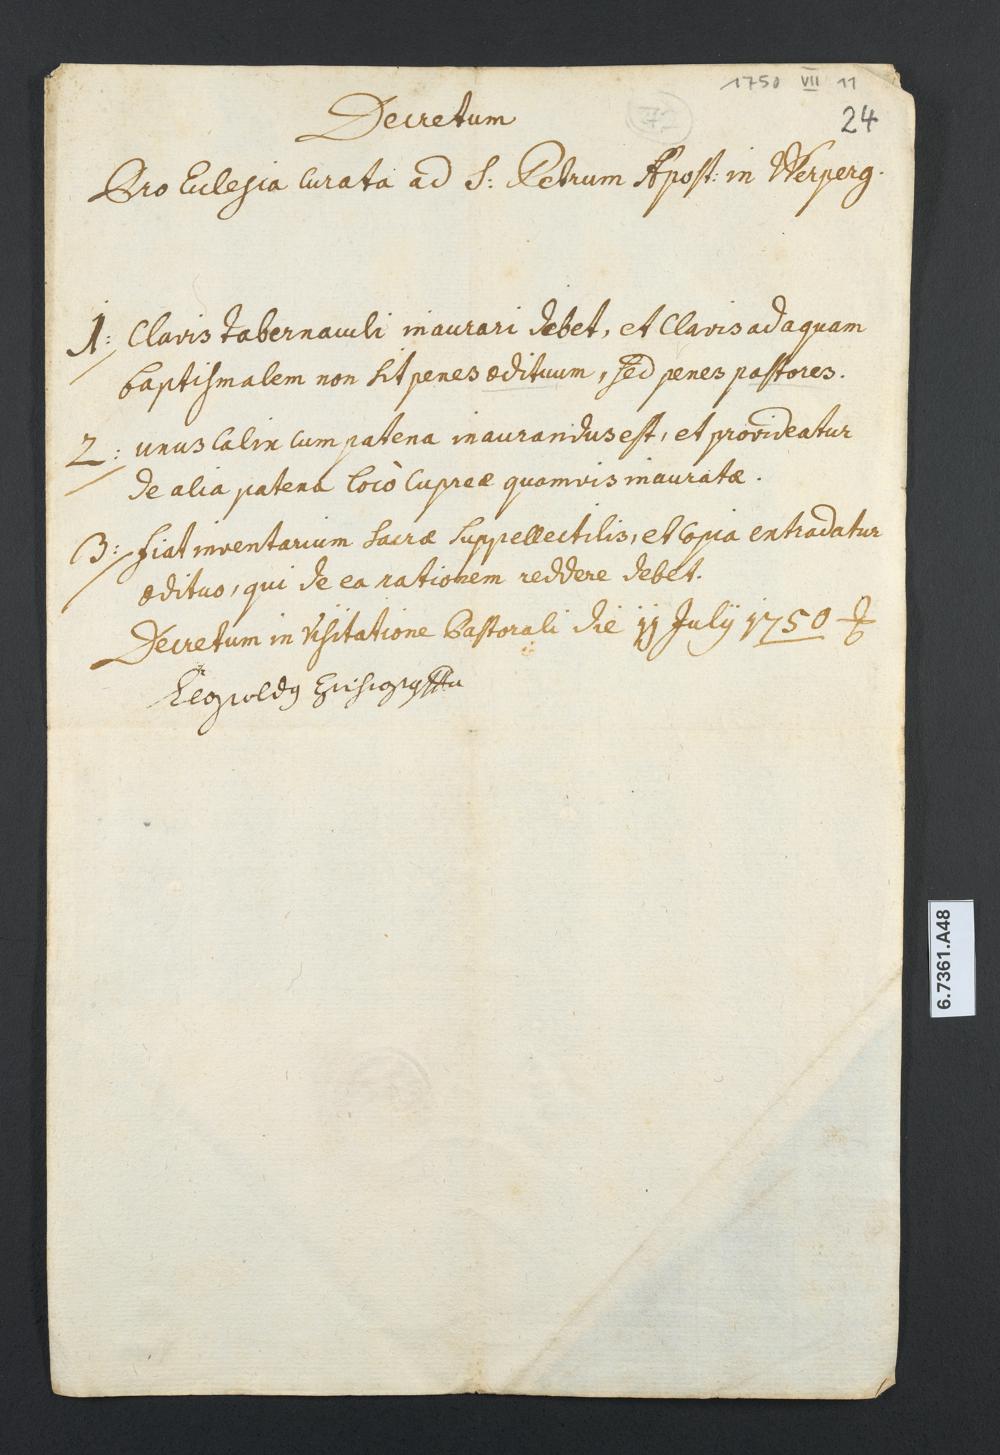 1750 VII 11
72
24
Decretum
Pro Eclesia Curata ad S: Petrum Apost: in Werperg.
1: Clavis tabernaculi inaurari debet, et Clavis ad aquam
baptismalem non sit penes ædituum, sed penes pastores.
2: unus Calix cum patena inaurandus est, et provideatur
de alia patena locò Cupreæ quamvis inauratæ.
3: fiat inventarium sacræ suppellectilis, et Copia extradatur
ædituo, qui de ea rationem reddere debet.
Decretum in Visitatione Pastorali die 11 July 1750
Leopoldus Episcopus
6.7361.A48